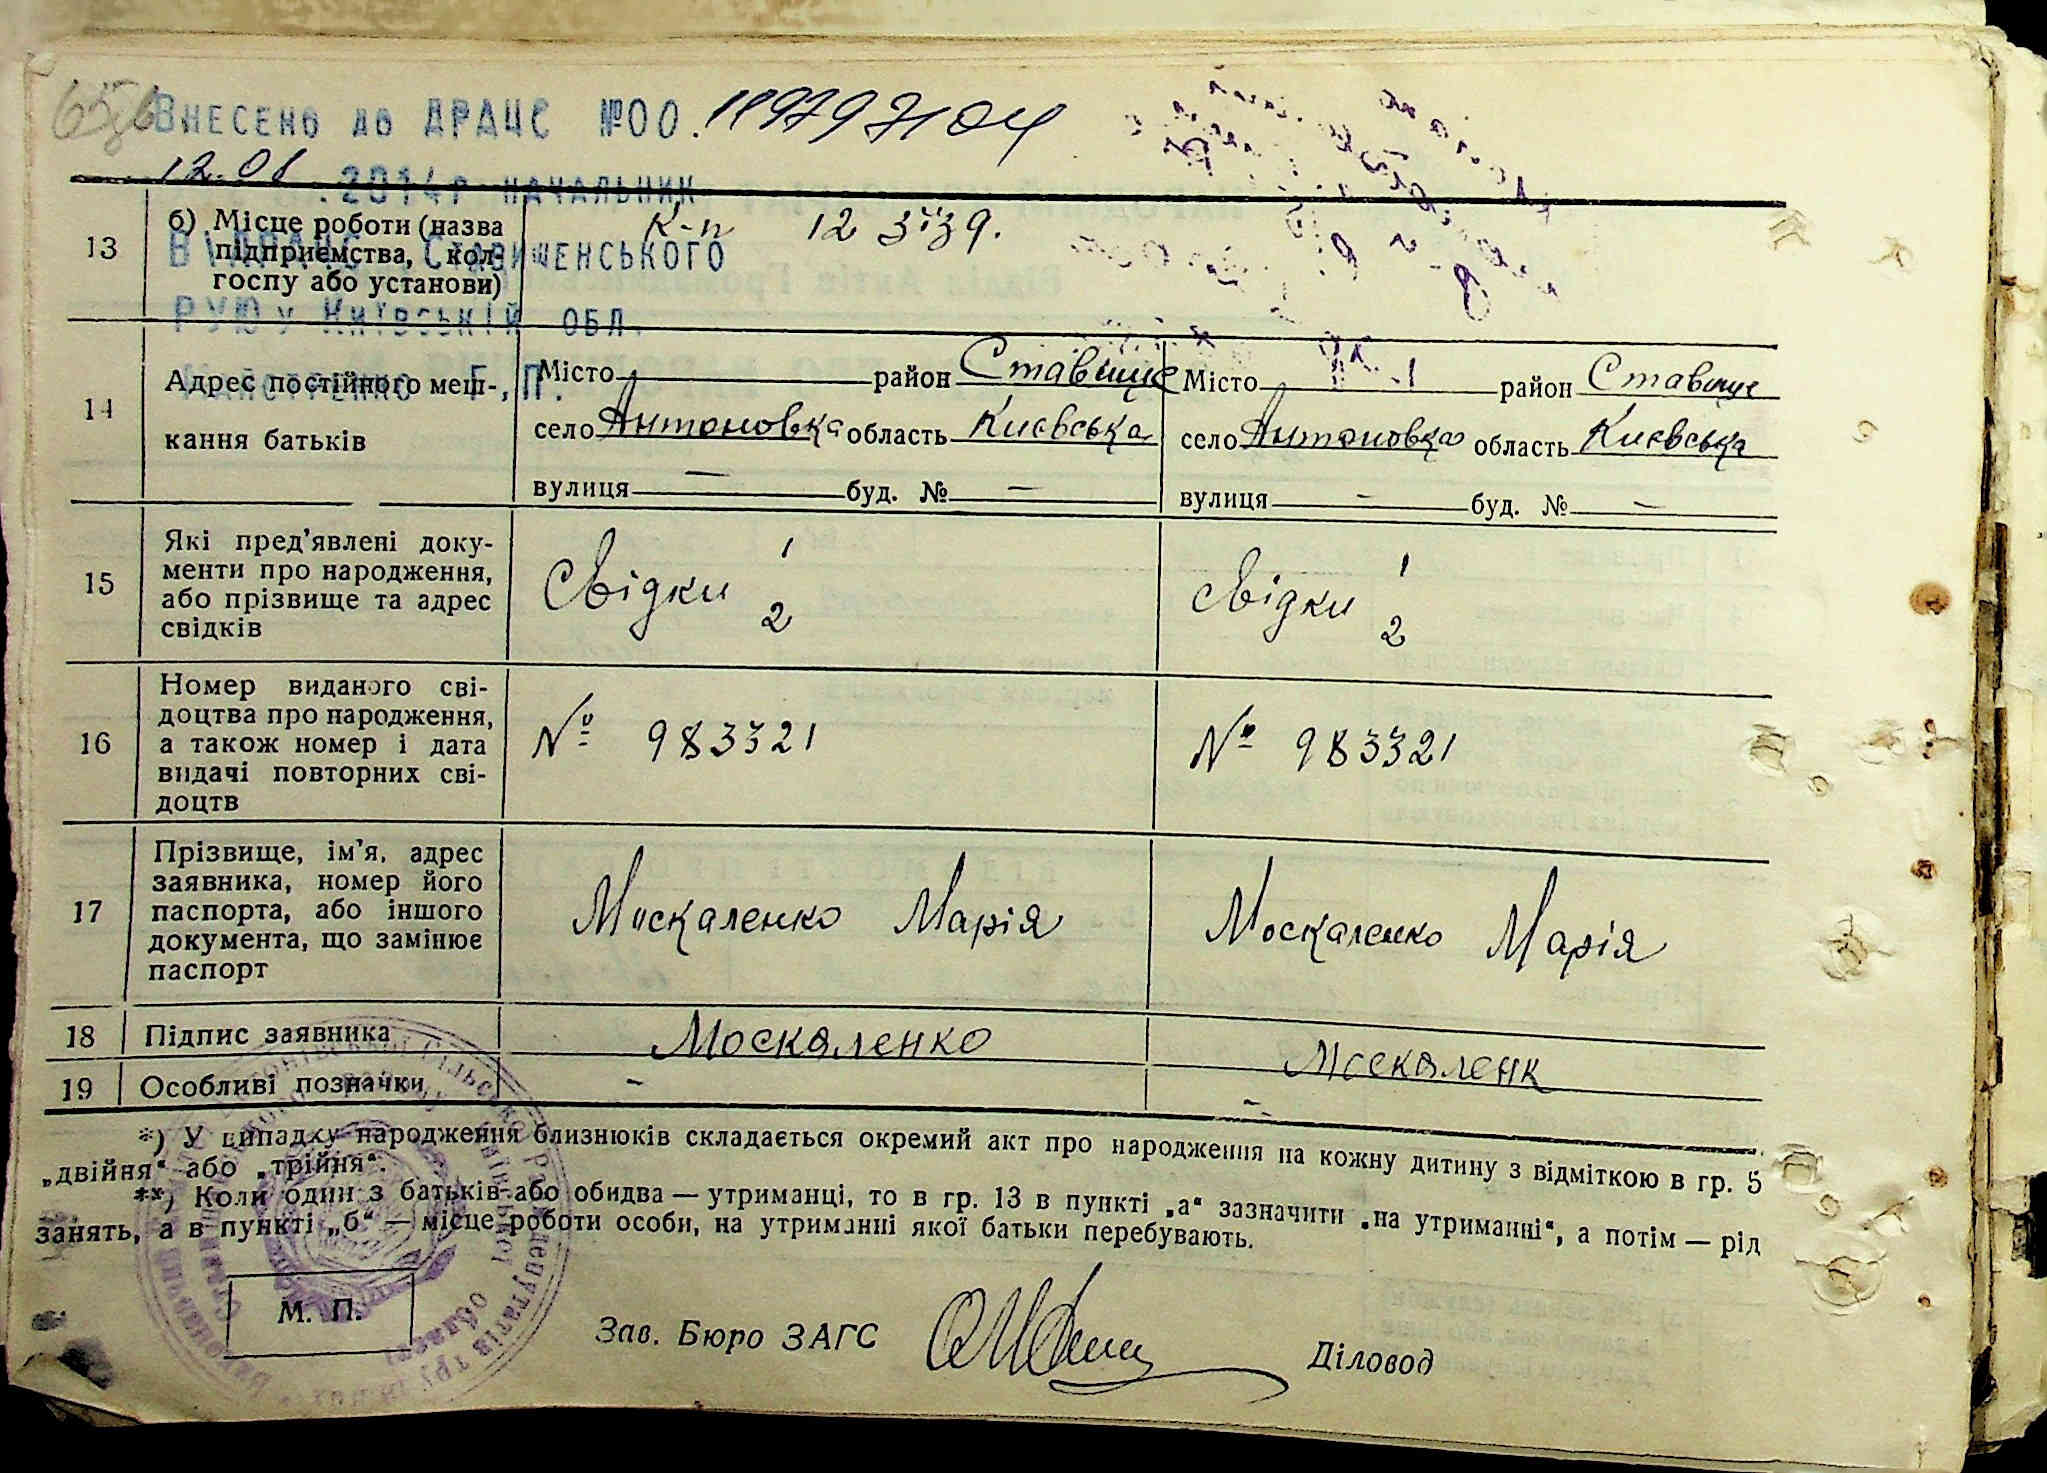 Внесено до ДРАЦС №00.
12.01.2014г начальник
Ставищенського
РУЮ у Київській обл.
Г.П.
13 б) Місце роботи (назва підприємства, колгоспу або установи) К-п 12 з'їзд.
14 Адрес постійного мешкання батьків
Місто район Ставище Місто район Ставище
село Антоновка область Києвська село Антоновка область Києвська
вулиця — буд. № — вулиця — буд. № —
15 Які пред'явлені документи про народження, або прізвище та адрес свідків
Свідки 1 2 Свідки 1 2
16 Номер виданого свідоцтва про народження, а також номер і дата видачі повторних свідоцтв
№ 983321 № 983321
17 Прізвище, ім'я, адрес заявника, номер його паспорта, або іншого документа, що замінює паспорт
Москаленко Марія Москаленко Марія
18 Підпис заявника Москаленко Москаленк
19 Особливі позначки - -
*) У випадку народження близнюків складається окремий акт про народження на кожну дитину з відміткою в гр. 5
„двійня" або „трійня".
**) Коли один з батьків або обидва — утриманці, то в гр. 13 в пункті „а" зазначити „на утриманні", а потім — рід
занять, а в пункті „б" — місце роботи особи, на утриманні якої батьки перебувають.
М. П.
Зав. Бюро ЗАГС Діловод